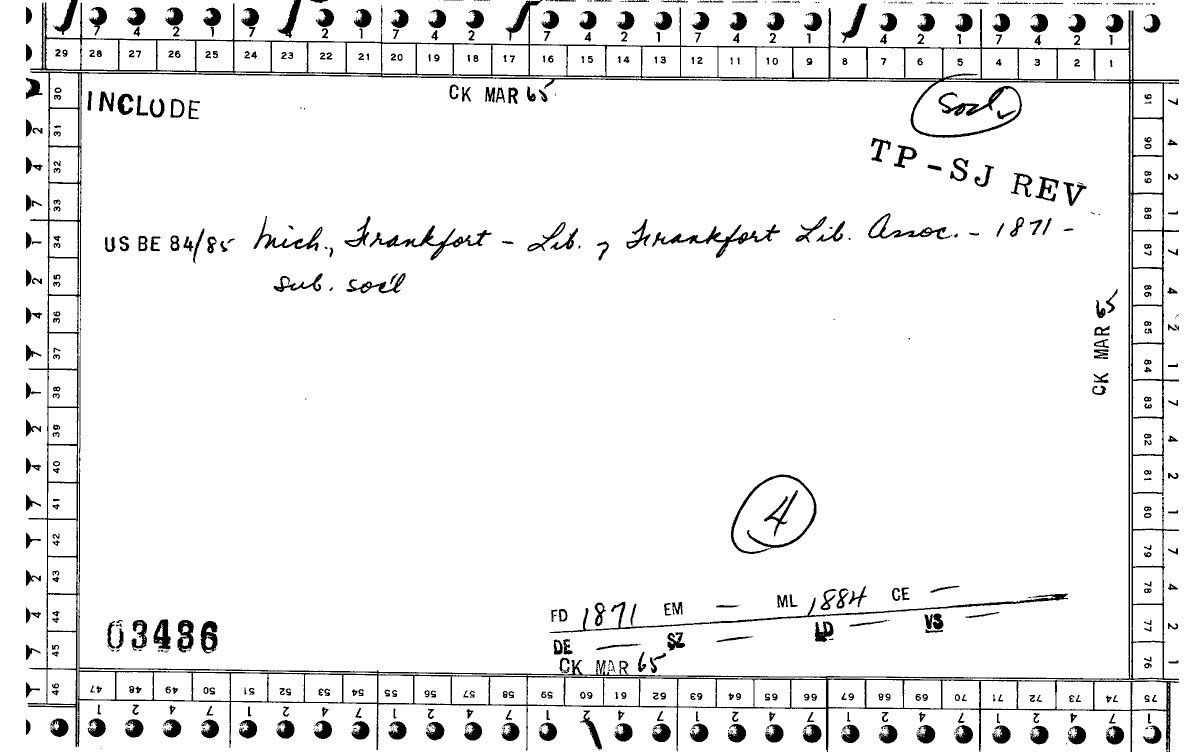 7 4 2 1 7 4 2 1 7 4 2 1 7 4 2 1 7 4 2 1 7 4 2 1 7 4 2 1
29 28 27 26 25 24 23 22 21 20 19 18 17 16 15 14 13 12 11 10 9 8 7 6 5 4 3 2 1
INCLUDE
CK MAR 65
Soc'l
TP-SJ REV
US BE 84/85 Mich., Frankfort - Lib. of Frankfort Lib. Assoc. - 1871 -
sub. soc'l
CK MAR 65
4
FD 1871 EM — ML 1884 CE —
DE — SZ — LD — VS —
CK MAR 65
03486
30 31 32 33 34 35 36 37 38 39 40 41 42 43 44 45 46
91 90 89 88 87 86 85 84 83 82 81 80 79 78 77 76
47 48 49 50 51 52 53 54 55 56 57 58 59 60 61 62 63 64 65 66 67 68 69 70 71 72 73 74 75